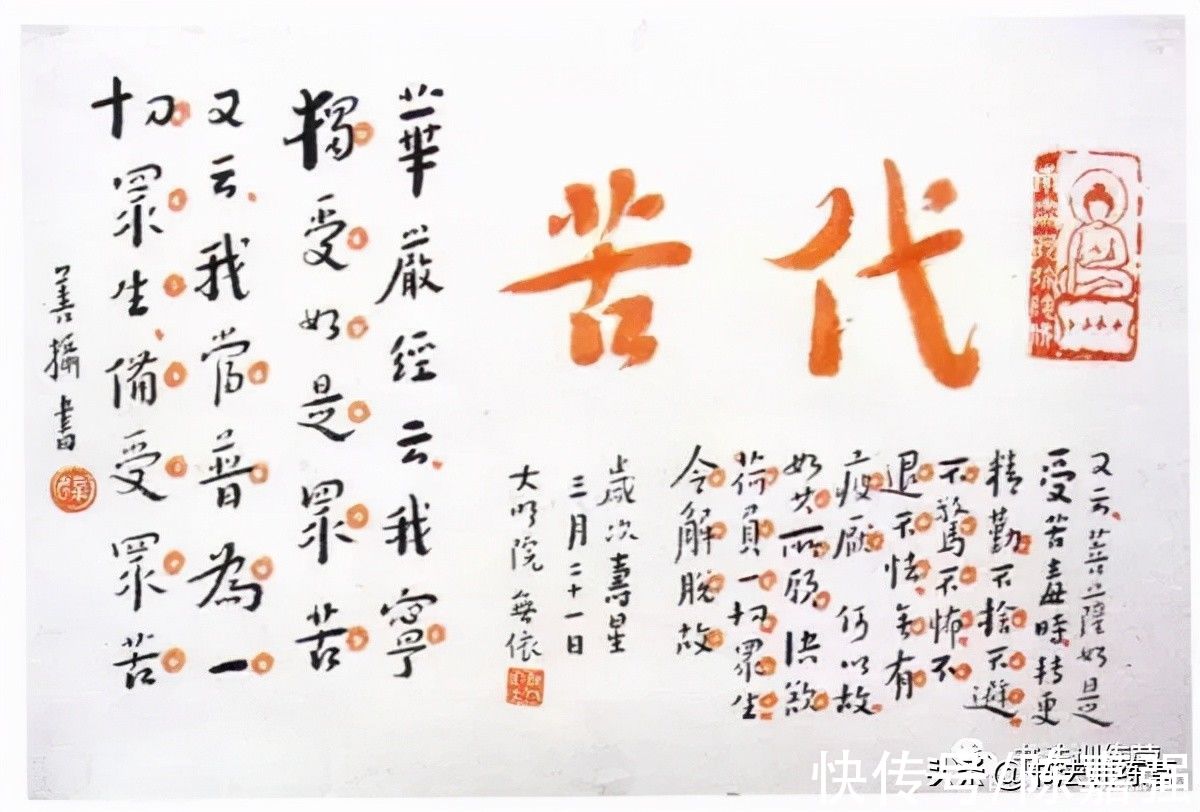 代苦
又云菩薩如是
受苦毒時轉更
精勤不捨不避
不驚不怖不
退不怯無有
疲厭何以故
如其所願決欲
荷負一切眾生
令解脫故
歲次壽星
三月二十一日
大明院 無依
華嚴經云我寧
獨受如是眾苦
又云我當普為一
切眾生備受眾苦
善攝書
快传号/
头条 @书法训练营